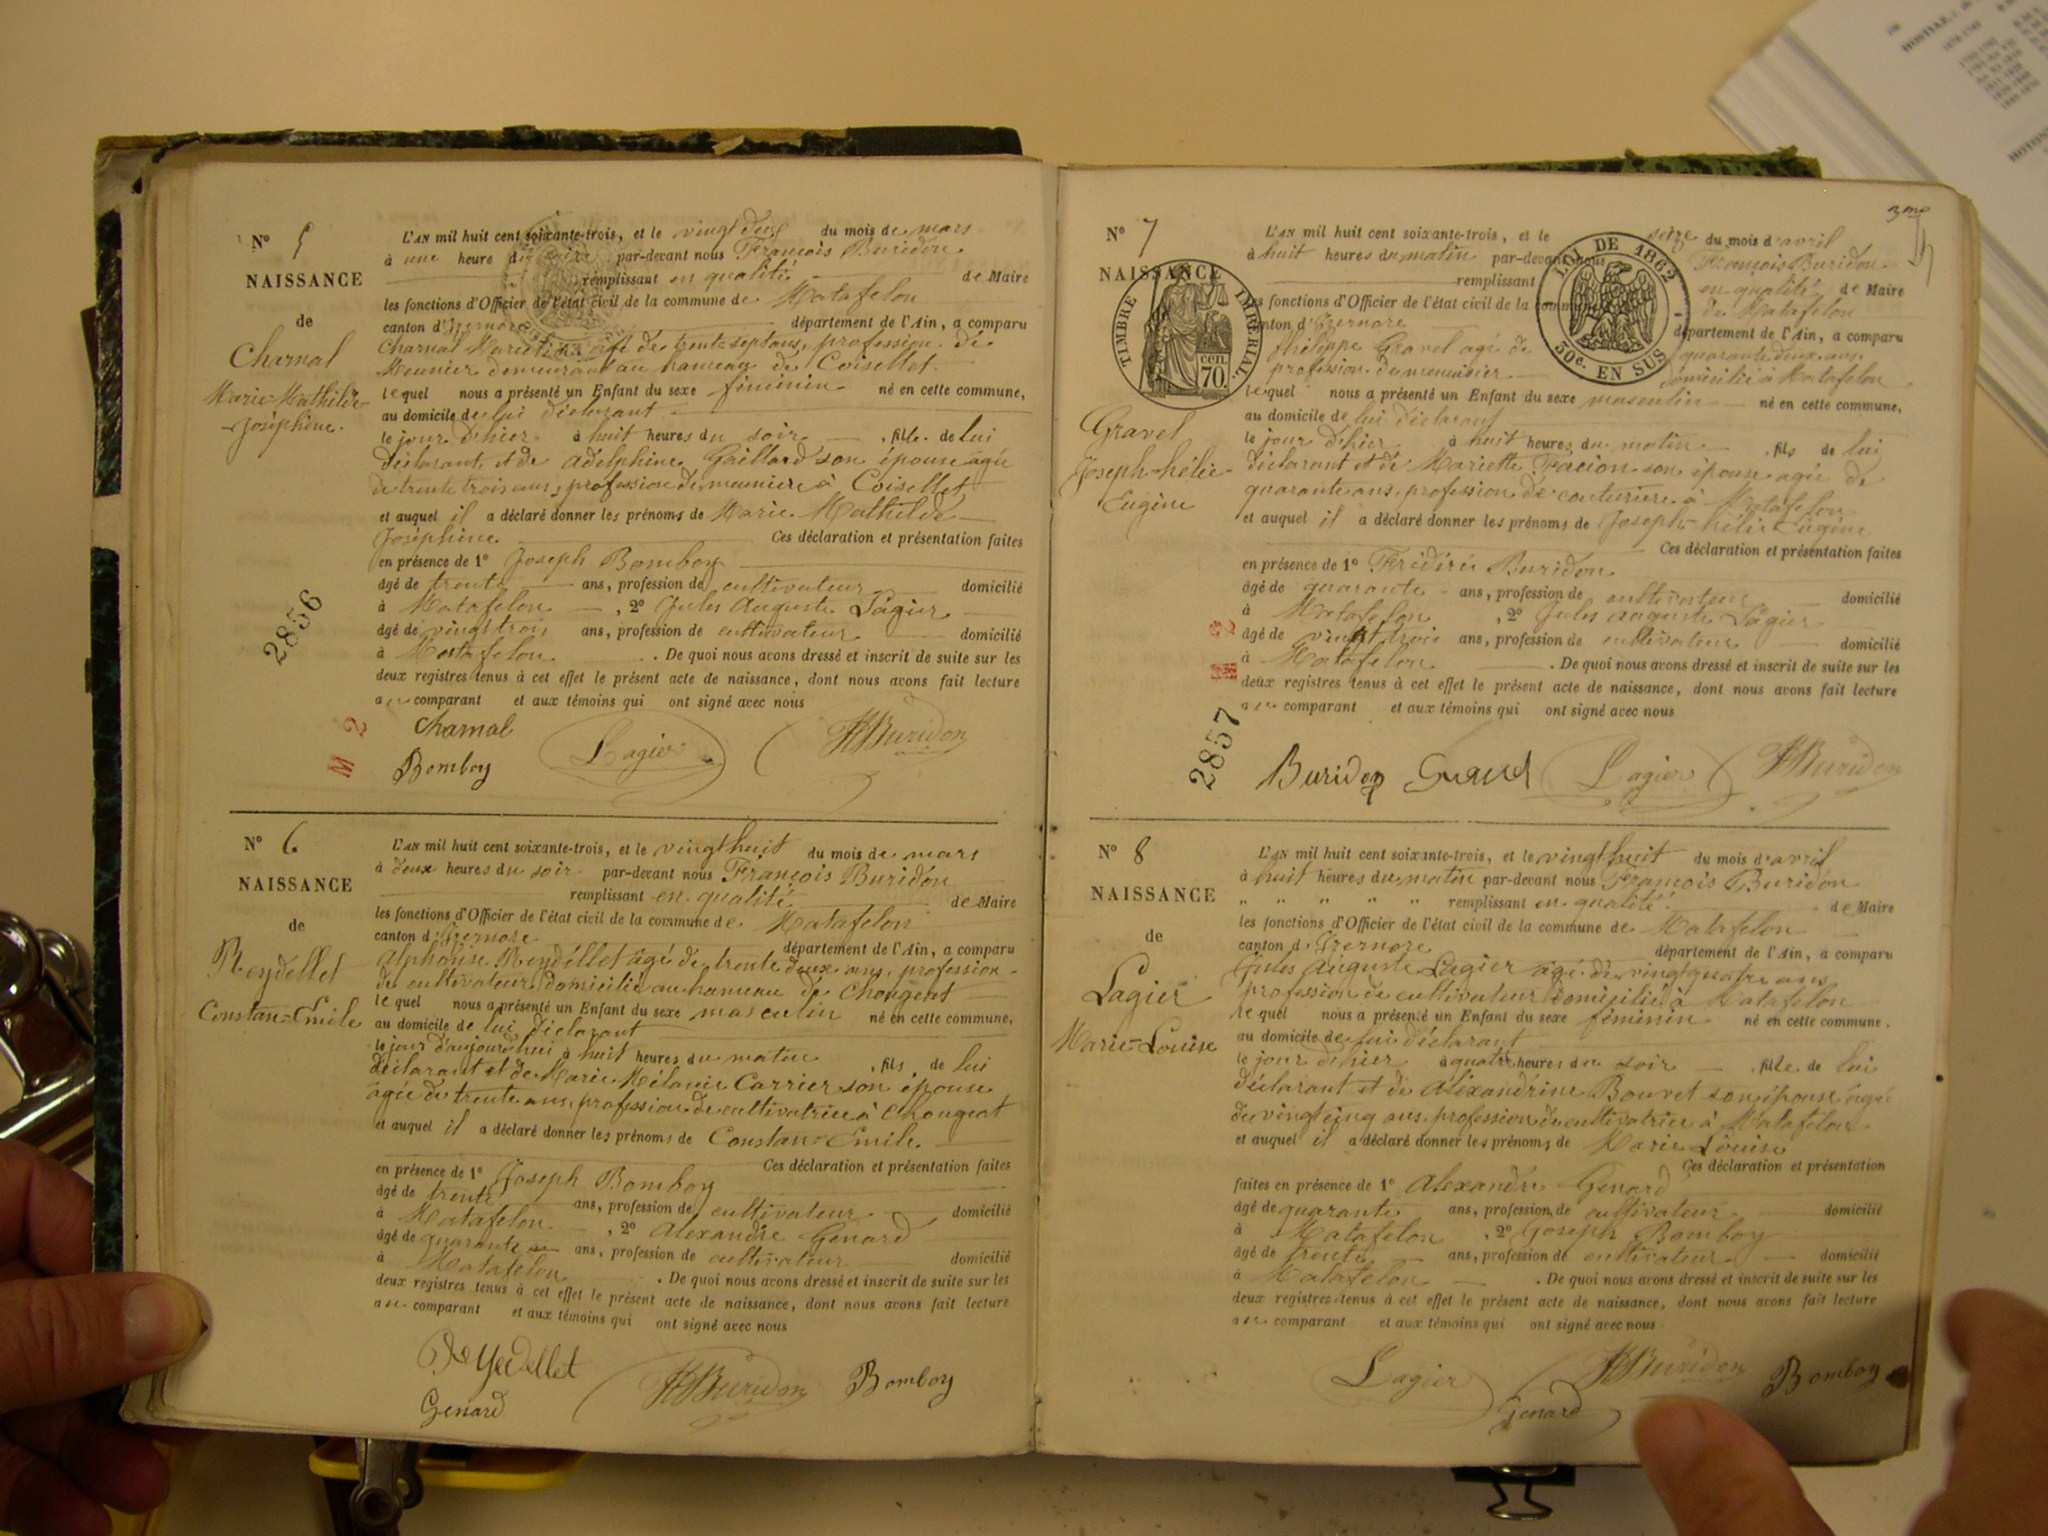 N° 5
NAISSANCE
de
Charnal
Marie Mathilde
Joséphine.
2856
M 2
L'AN mil huit cent soixante-trois, et le vingt deux du mois de mars
à une heure du soir par-devant nous François Buridon
remplissant en qualité de Maire
les fonctions d'Officier de l'état civil de la commune de Matafelon
canton d'Izernore département de l'Ain, a comparu
Charnal agé de trente sept ans, profession de
Meunier demeurant au hameau de Coisellet
lequel nous a présenté un Enfant du sexe féminin né en cette commune,
au domicile de lui déclarant
le jour d'hier à huit heures du soir, fille de lui
déclarant et de Adelphine Gaillard son épouse agée
de trente trois ans, profession de meunière à Coisellet
et auquel il a déclaré donner les prénoms de Marie Mathilde
Joséphine. Ces déclaration et présentation faites
en présence de 1° Joseph Bomboy
âgé de trente ans, profession de cultivateur domicilié
à Matafelon, 2° Jules Auguste Lagier
âgé de vingt trois ans, profession de cultivateur domicilié
à Matafelon. De quoi nous avons dressé et inscrit de suite sur les
deux registres tenus à cet effet le présent acte de naissance, dont nous avons fait lecture
au comparant et aux témoins qui ont signé avec nous
Charnal
Bomboy Lagier Buridon
N° 6
NAISSANCE
de
Reydellet
Constan=Emile
L'AN mil huit cent soixante-trois, et le vingt huit du mois de mars
à deux heures du soir par-devant nous François Buridon
remplissant en qualité de Maire
les fonctions d'Officier de l'état civil de la commune de Matafelon
canton d'Izernore département de l'Ain, a comparu
Alphonse Reydellet agé de trente deux ans, profession
de cultivateur domicilié au hameau de Chougeat
lequel nous a présenté un Enfant du sexe masculin né en cette commune,
au domicile de lui déclarant
le jour d'aujourd'hui à huit heures du matin, fils de lui
déclarant et de Marie Mélanie Carrier son épouse
agée de trente ans, profession de cultivatrice à Chougeat
et auquel il a déclaré donner les prénoms de Constan=Emile.
Ces déclaration et présentation faites
en présence de 1° Joseph Bomboy
âgé de trente ans, profession de cultivateur domicilié
à Matafelon, 2° Alexandre Genard
âgé de quarante ans, profession de cultivateur domicilié
à Matafelon. De quoi nous avons dressé et inscrit de suite sur les
deux registres tenus à cet effet le présent acte de naissance, dont nous avons fait lecture
au comparant et aux témoins qui ont signé avec nous
Reydellet
Genard Buridon Bomboy
N° 7
NAISSANCE
TIMBRE IMPERIAL
cen. 70.
LOI DE 1862
50c. EN SUS
Gravel
Joseph-hélie
Eugène
2857
L'AN mil huit cent soixante-trois, et le seize du mois d'avril
à huit heures du matin par-devant nous François Buridon
remplissant en qualité de Maire
les fonctions d'Officier de l'état civil de la commune de Matafelon
canton d'Izernore département de l'Ain, a comparu
Philippe Gravel agé de quarante deux ans
profession de menuisier domicilié à Matafelon
lequel nous a présenté un Enfant du sexe masculin né en cette commune,
au domicile de lui déclarant
le jour d'hier à huit heures du matin, fils de lui
déclarant et de Mariette Facion son épouse agée de
quarante ans, profession de couturière à Matafelon
et auquel il a déclaré donner les prénoms de Joseph-hélie Eugène
Ces déclaration et présentation faites
en présence de 1° Frédéric Buridon
âgé de quarante ans, profession de cultivateur domicilié
à Matafelon, 2° Jules auguste Lagier
âgé de vingt trois ans, profession de cultivateur domicilié
à Matafelon. De quoi nous avons dressé et inscrit de suite sur les
deux registres tenus à cet effet le présent acte de naissance, dont nous avons fait lecture
au comparant et aux témoins qui ont signé avec nous
Buridon Gravel Lagier Buridon
N° 8
NAISSANCE
de
Lagier
Marie=Louise
L'AN mil huit cent soixante-trois, et le vingt huit du mois d'avril
à huit heures du matin par-devant nous François Buridon
" " " " " remplissant en qualité de Maire
les fonctions d'Officier de l'état civil de la commune de Matafelon
canton d'Izernore département de l'Ain, a comparu
Jules Auguste Lagier agé de vingt quatre ans
profession de cultivateur domicilié à Matafelon
lequel nous a présenté un Enfant du sexe féminin né en cette commune.
au domicile de lui déclarant
le jour d'hier à quatre heures du soir, fille de lui
déclarant et de Alexandrine Bouvet son épouse agée
de vingt cinq ans, profession de cultivatrice à Matafelon
et auquel il a déclaré donner les prénoms de Marie Louise
Ces déclaration et présentation
faites en présence de 1° Alexandre Genard
âgé de quarante ans, profession de cultivateur domicilié
à Matafelon, 2° Joseph Bomboy
âgé de trente ans, profession de cultivateur domicilié
à Matafelon. De quoi nous avons dressé et inscrit de suite sur les
deux registres tenus à cet effet le présent acte de naissance, dont nous avons fait lecture
au comparant et aux témoins qui ont signé avec nous
Lagier Buridon Bomboy
Genard